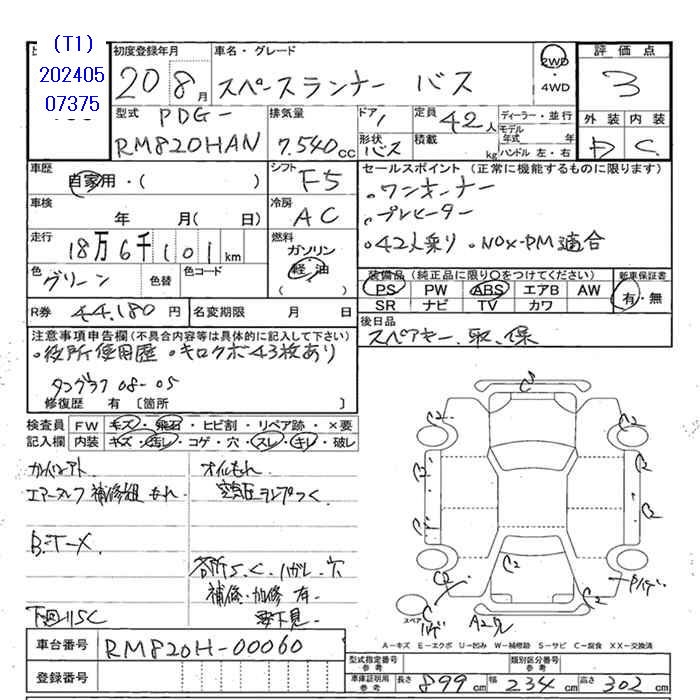 (T1)
202405
07375
初度登録年月
20 8月
車名・グレード
スペースランナー バス
2WD
・
4WD
評価点
3
型式
PDG-
RM820HAN
排気量
7.540cc
ドア
形状
バス
定員
42人
積載
kg
ディーラー・並行
モデル
年式 年
ハンドル 左・右
外装 内装
D C
車歴
自家用・( )
シフト
F5
車検
年 月( 日)
冷房
AC
走行
18万6千101km
燃料
ガソリン
軽・油
( )
色
グリーン
色替
色コード
R券 44,180円
名変期限 月 日
セールスポイント(正常に機能するものに限ります)
・ワンオーナー
・プレヒーター
・42人乗り ・NOx・PM適合
装備品(純正品に限り○をつけてください)
PS PW ABS エアB AW
SR ナビ TV カワ
新車保証書
有・無
後日品
スペアキー、取、保
注意事項申告欄(不具合内容等は具体的に記入して下さい)
・役所使用歴 ・キロクボ43枚あり
タコグラフ 08-05
修復歴 有 〔箇所 〕
検査員
記入欄
FW キズ・飛石・ヒビ割・リペア跡・×要
内装 キズ・汚レ・コゲ・穴・スレ・キレ・破レ
オイルもれ
補修組 もれ
空気圧ランプつく
各所S.C.ハガレ.穴
補修・加修 有
要下見
下回りSC
車台番号 RM820H-00060
登録番号
C
C2
C2
C2
C2
C2
C2
C2
C2
スペア
A2
A-キズ E-エクボ U-凹み W-補修跡 S-サビ C-腐食 XX-交換済
型式指定番号
参考
類別区分番号
参考
車庫証明用
参考
長さ 899cm 幅 234cm 高さ 302cm